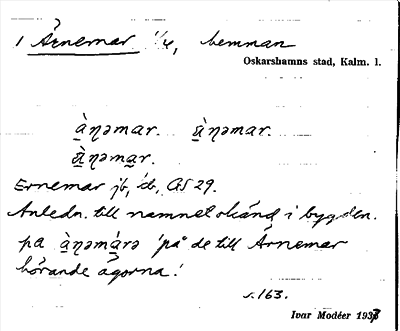 1 Årnemar 1/4, hemman
Oskarshamns stad, Kalm. l.
à̱ŋəmar. à̱ŋəmar.
à̱ŋəma̱r.
Ernemar jb, ib, GS 29.
Anledn. till namnet okänd i bygden.
pa à̱ŋəmá̱rə 'på de till Årnemar
hörande ägorna'.
s. 163.
Ivar Modéer 1933